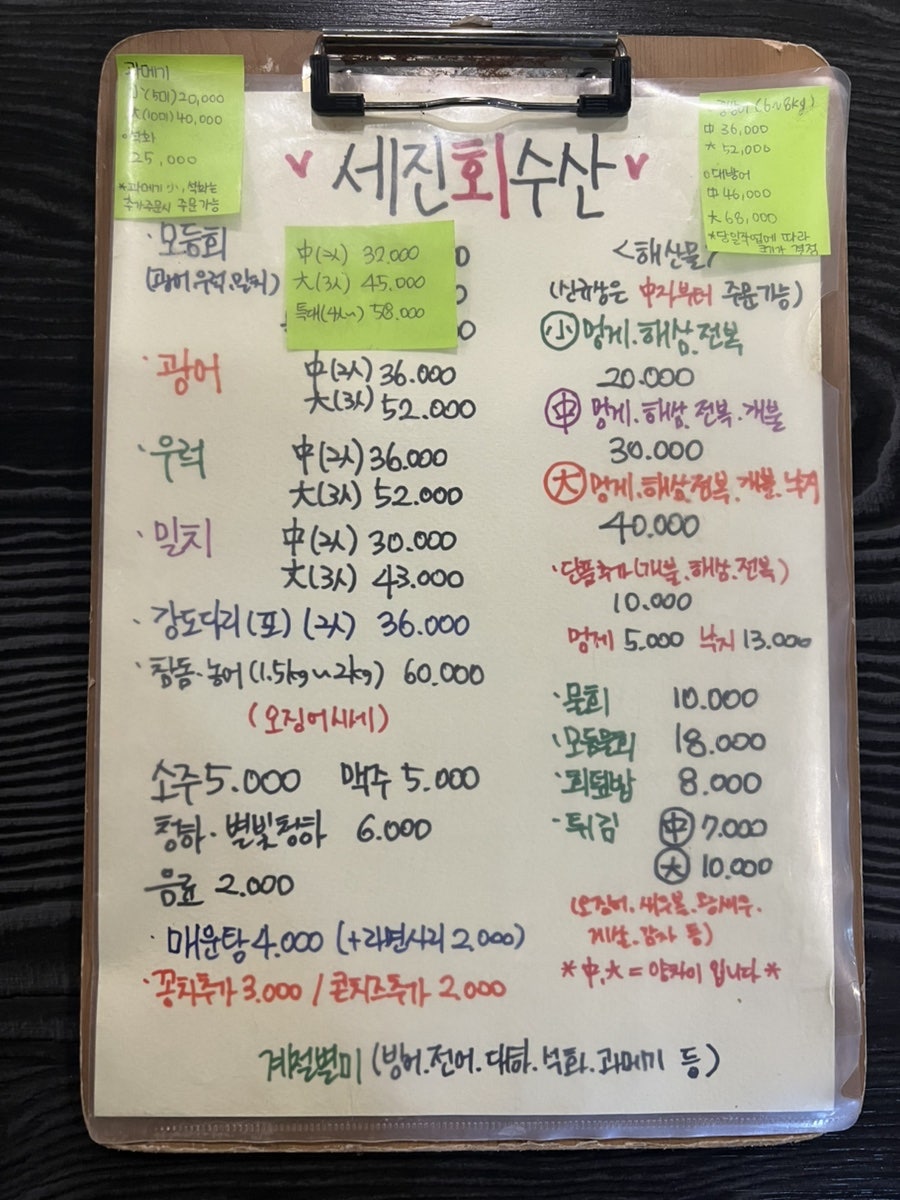 과메기
小(5미) 20,000
大(10미) 40,000
석화
25,000
*과메기 小, 석화는
추가주문시 주문가능
(6~8kg)
中 36,000
大 52,000
대방어
中 46,000
大 68,000
*당일 시세에 따라
결정
세진회수산
·모듬회
(광어.우럭.밀치)
中(2人) 32.000
大(3人) 45.000
특대(4人~) 58.000
·광어 中(2人) 36.000
大(3人) 52.000
·우럭 中(2人) 36.000
大(3人) 52.000
·밀치 中(2人) 30.000
大(3人) 43.000
·강도다리(포) (2人) 36.000
·참돔·농어(1.5kg~2kg) 60.000
(오징어시세)
소주 5.000 맥주 5.000
청하·별빛청하 6.000
음료 2.000
·매운탕 4.000 (+라면사리 2.000)
·꽁치추가 3.000 / 콘치즈추가 2.000
<해산물>
(신규상은 中자부터 주문가능)
小 멍게.해삼.전복
20.000
中 멍게.해삼.전복.개불
30.000
大 멍게.해삼.전복.개불.낙지
40.000
·단품추가(개불.해삼.전복)
10.000
멍게 5.000 낙지 13.000
·물회 10.000
·모듬물회 18.000
·회덮밥 8.000
·튀김 中 7.000
大 10.000
(오징어.새우볼.통새우.
게살.감자 등)
*中,大 = 양차이 입니다*
계절별미 (방어.전어.대하.석화.과메기 등)